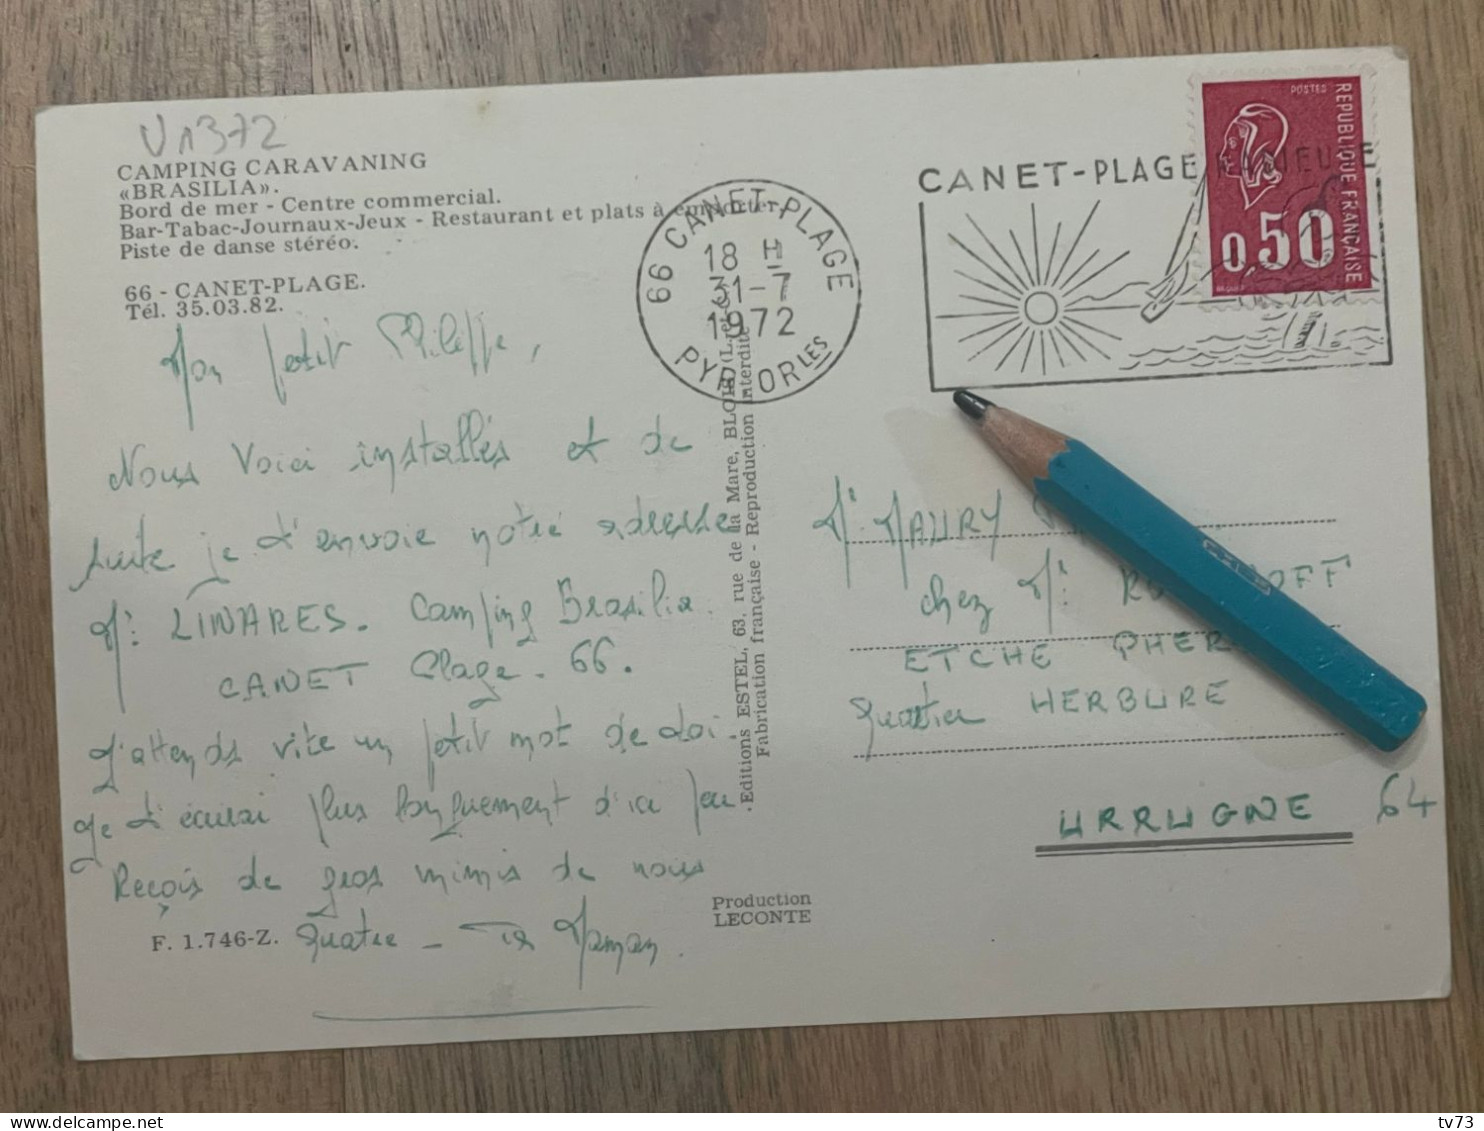 V 1372
CAMPING CARAVANING
«BRASILIA».
Bord de mer - Centre commercial.
Bar-Tabac-Journaux-Jeux - Restaurant et plats à emporter.
Piste de danse stéréo.
66 - CANET-PLAGE.
Tél. 35.03.82.
66 CANET-PLAGE
18 H
31-7
1972
PYR.-ORLES
CANET-PLAGE
POSTES
REPUBLIQUE FRANÇAISE
0,50
Mon petit Philippe,
Nous voici installés et de
suite je t'envoie notre adresse
Mr LINARES. Camping Brasilia.
CANET Plage. 66.
J'attends vite un petit mot de toi.
Je t'écrirai plus longuement d'ici peu
Reçois de gros mimis de nous
quatre - Ta Maman.
F. 1.746-Z.
Editions ESTEL, 63, rue de la Mare, BLOIS (L.-et-C.)
Fabrication française - Reproduction interdite
Production
LECONTE
Mr MAURY
chez Mr
ETCHE
quartier HERBURE
URRUGNE 64
Delcampe.net
tv73